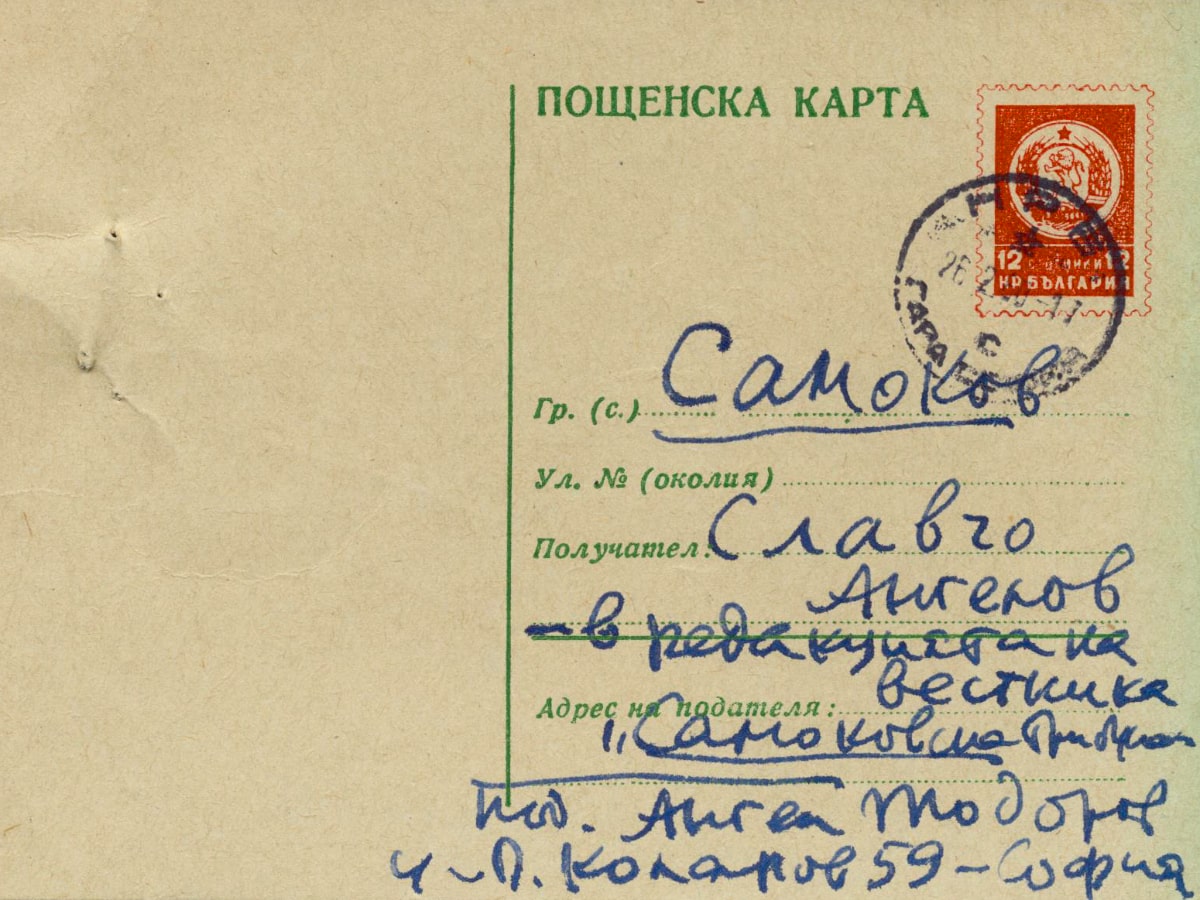 ПОЩЕНСКА КАРТА
12 стотинки 12
НР БЪЛГАРИЯ
26 2
ГАРА
С
Гр. (с.) Самоков
Ул. № (околия)
Получател: Славчо
Ангелов
– в редакцията на
вестника
Адрес на подателя:
„Самоковска трибуна
под. Ангел Тодоров
В. Коларов 59 – София